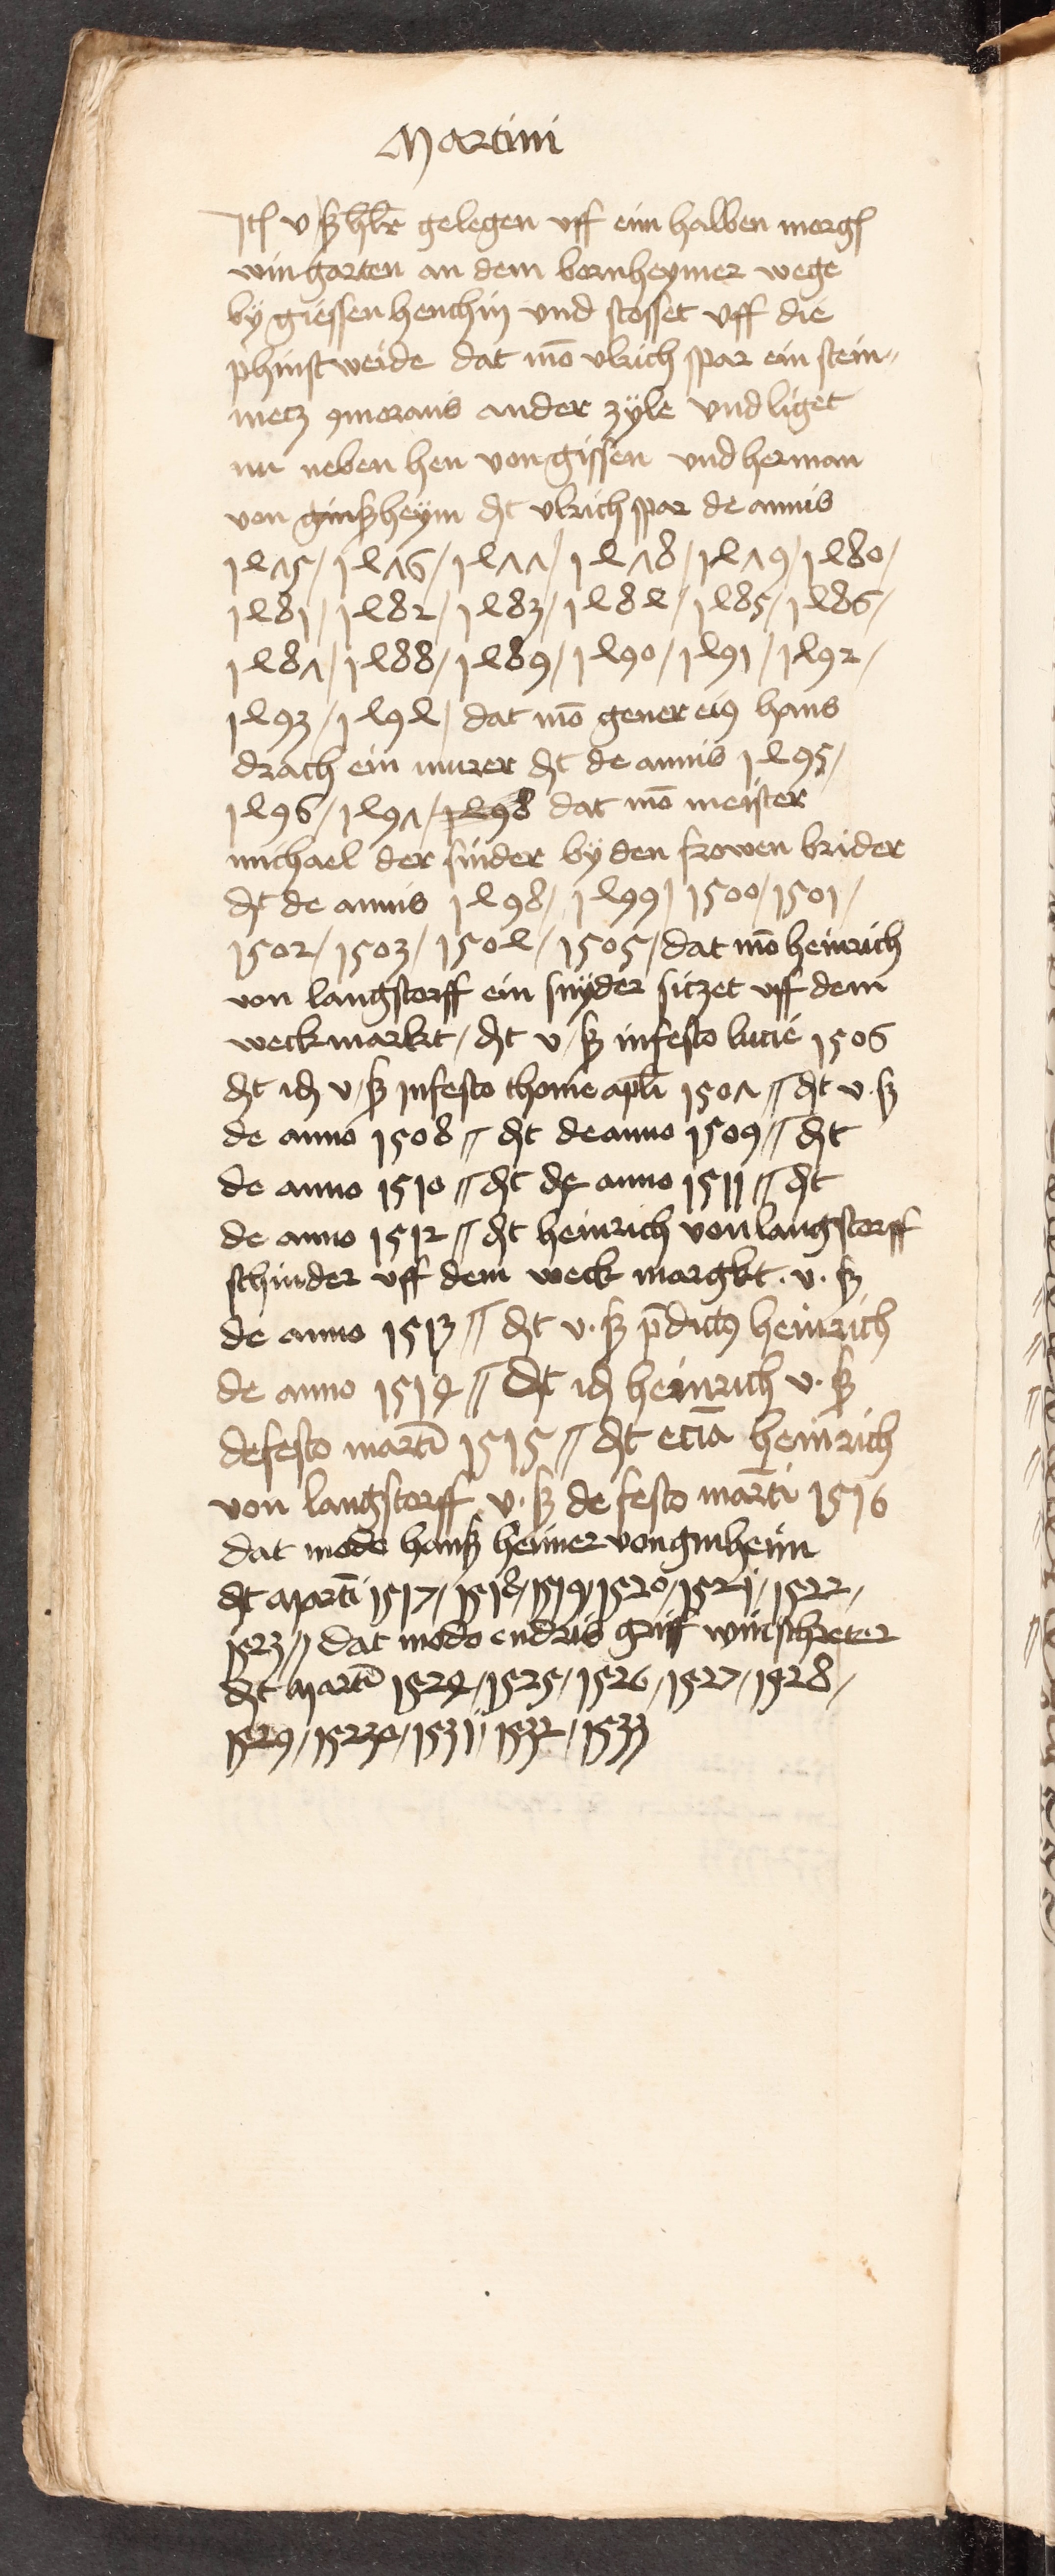 Martini
Itē v ß hlr gelegen vff eim halben morgē
wingarten an dem bornheymer wege
by giessen henchin vnd stosset vff die
phinstweide dat mō vlrich spar ein stein„
metz 9morans an der zyle vnd liget
nu neben hen von gissen vnd herman
von ginßheym dt vlrich spar de annis
1475/ 1476/ 1477/ 1478/ 1479/ 1480/
1481/ 1482/ 1483/ 1484/ 1485/ 1486/
1487/ 1488/ 1489/ 1490/ 1491/ 1492/
1493/ 1494/ dat mō gener ei9 hans
drach ein murer dt de annis 1495/
1496/ 1497/ 1498 dat mō meister
michael der sinder by den frowen brider
dt de annis 1498/ 1499/ 1500/ 1501/
1502/ 1503/ 1504/ 1505/ dat mō heinrich
von langstorff ein snyder sitzet vff dem
weckmarkt/ dt v/ß in festo lucie 1506
dt id v/ß in festo thome apli 1507 // dt v·ß
de anno 1508 // dt de anno 1509 // dt
de anno 1510 // dt de anno 1511 // dt
de anno 1512 // dt heinrich von langstorff
schinder vff dem weck margkt · v · ß
de anno 1513 // dt v·ß pdict9 heinrich
de anno 1514 // dt id heinrich v·ß
de festo martī 1515 // dt eciā heinrich
von langstorff v·ß de festo martī 1516
dat modo hanß heimer von ginheim
dt Martī 1517/ 1518/ 1519/ 1520/ 1521/ 1522/
1523// dat modo endris griff winschreter
dt Martī 1524/ 1525/ 1526/ 1527/ 1528/
1529/ 15230/ 1531/ 1532/ 1533